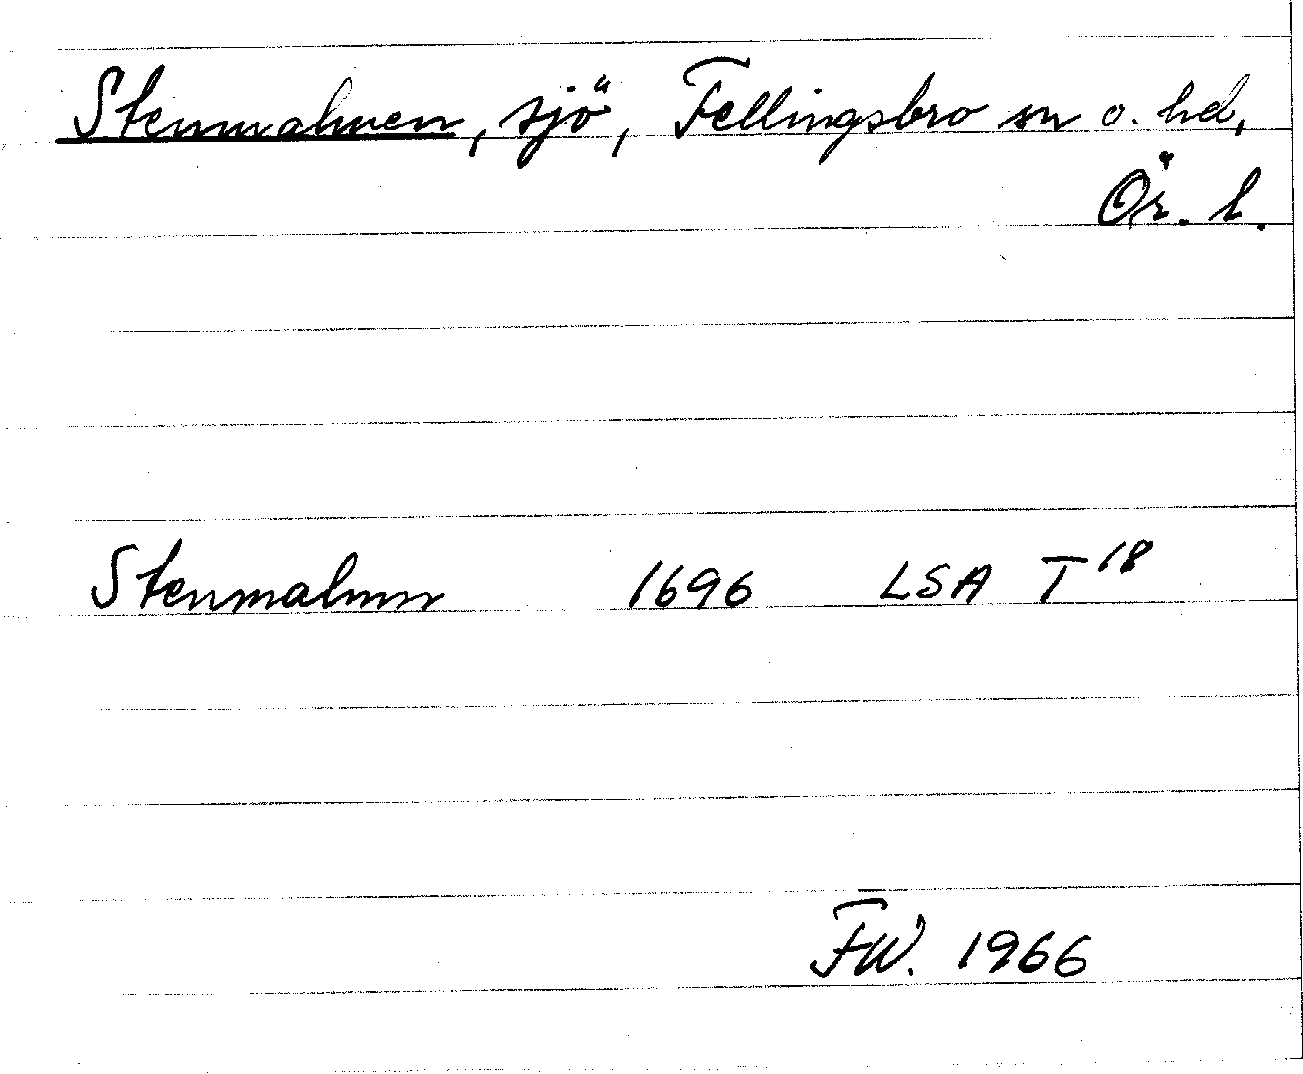 Stenmalmen, sjö, Fellingsbro sn o. hd,
Ör. l.
Stenmalmn 1696 LSA T 18
FW. 1966